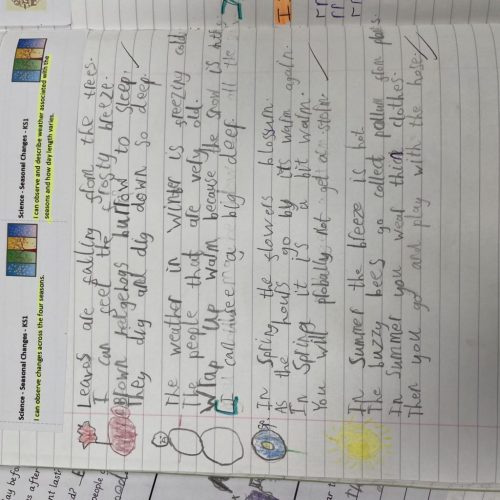 Science - Seasonal Changes - KS1
I can observe changes across the four seasons.
Science - Seasonal Changes - KS1
I can observe and describe weather associated with the seasons and how day length varies.
Leavos are falling from the trees.
I can feel the frosty breeze.
Brown hedgehogs burrow to sleep.
They dig and dig down so deep.
The weather in winter is freezing cold
The people that are very old.
Wrap up warm because the snow is
I can a big deep all the
In Spring the flowers blossum.
As the hours go by its warm again.
In Spring it is a bit warm.
You will probally not get a storm.
In Summer the breeze is hot.
The buzzy bees go collect pollun from pots.
In Summer you wear thin clothes.
Then you go and play with the hose.